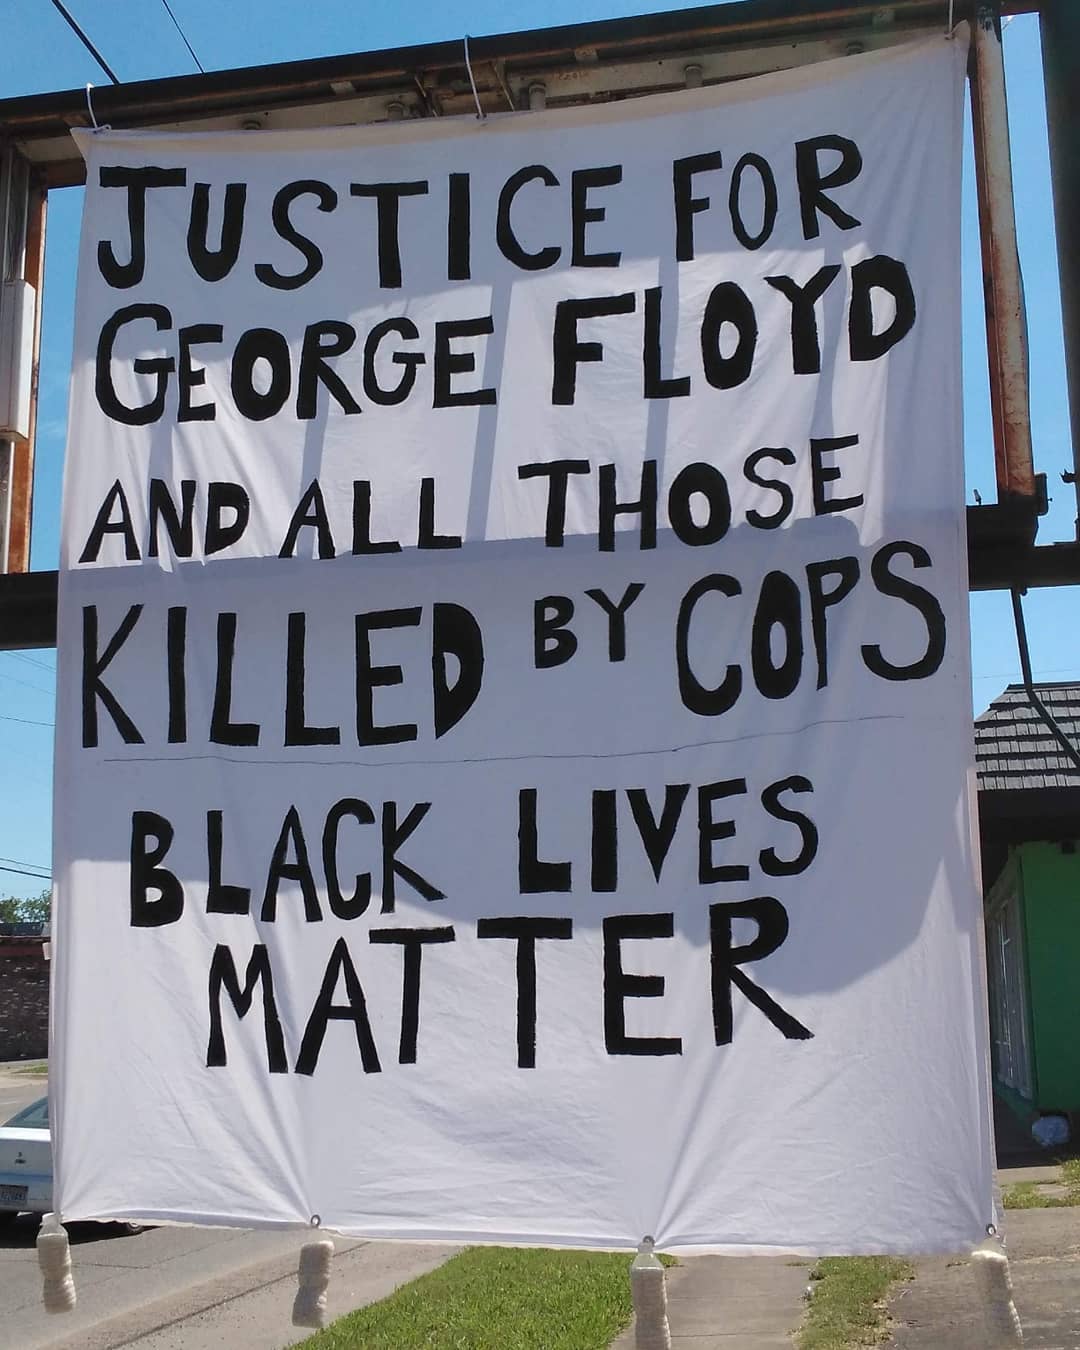 JUSTICE FOR
GEORGE FLOYD
AND ALL THOSE
KILLED BY COPS
BLACK LIVES
MATTER